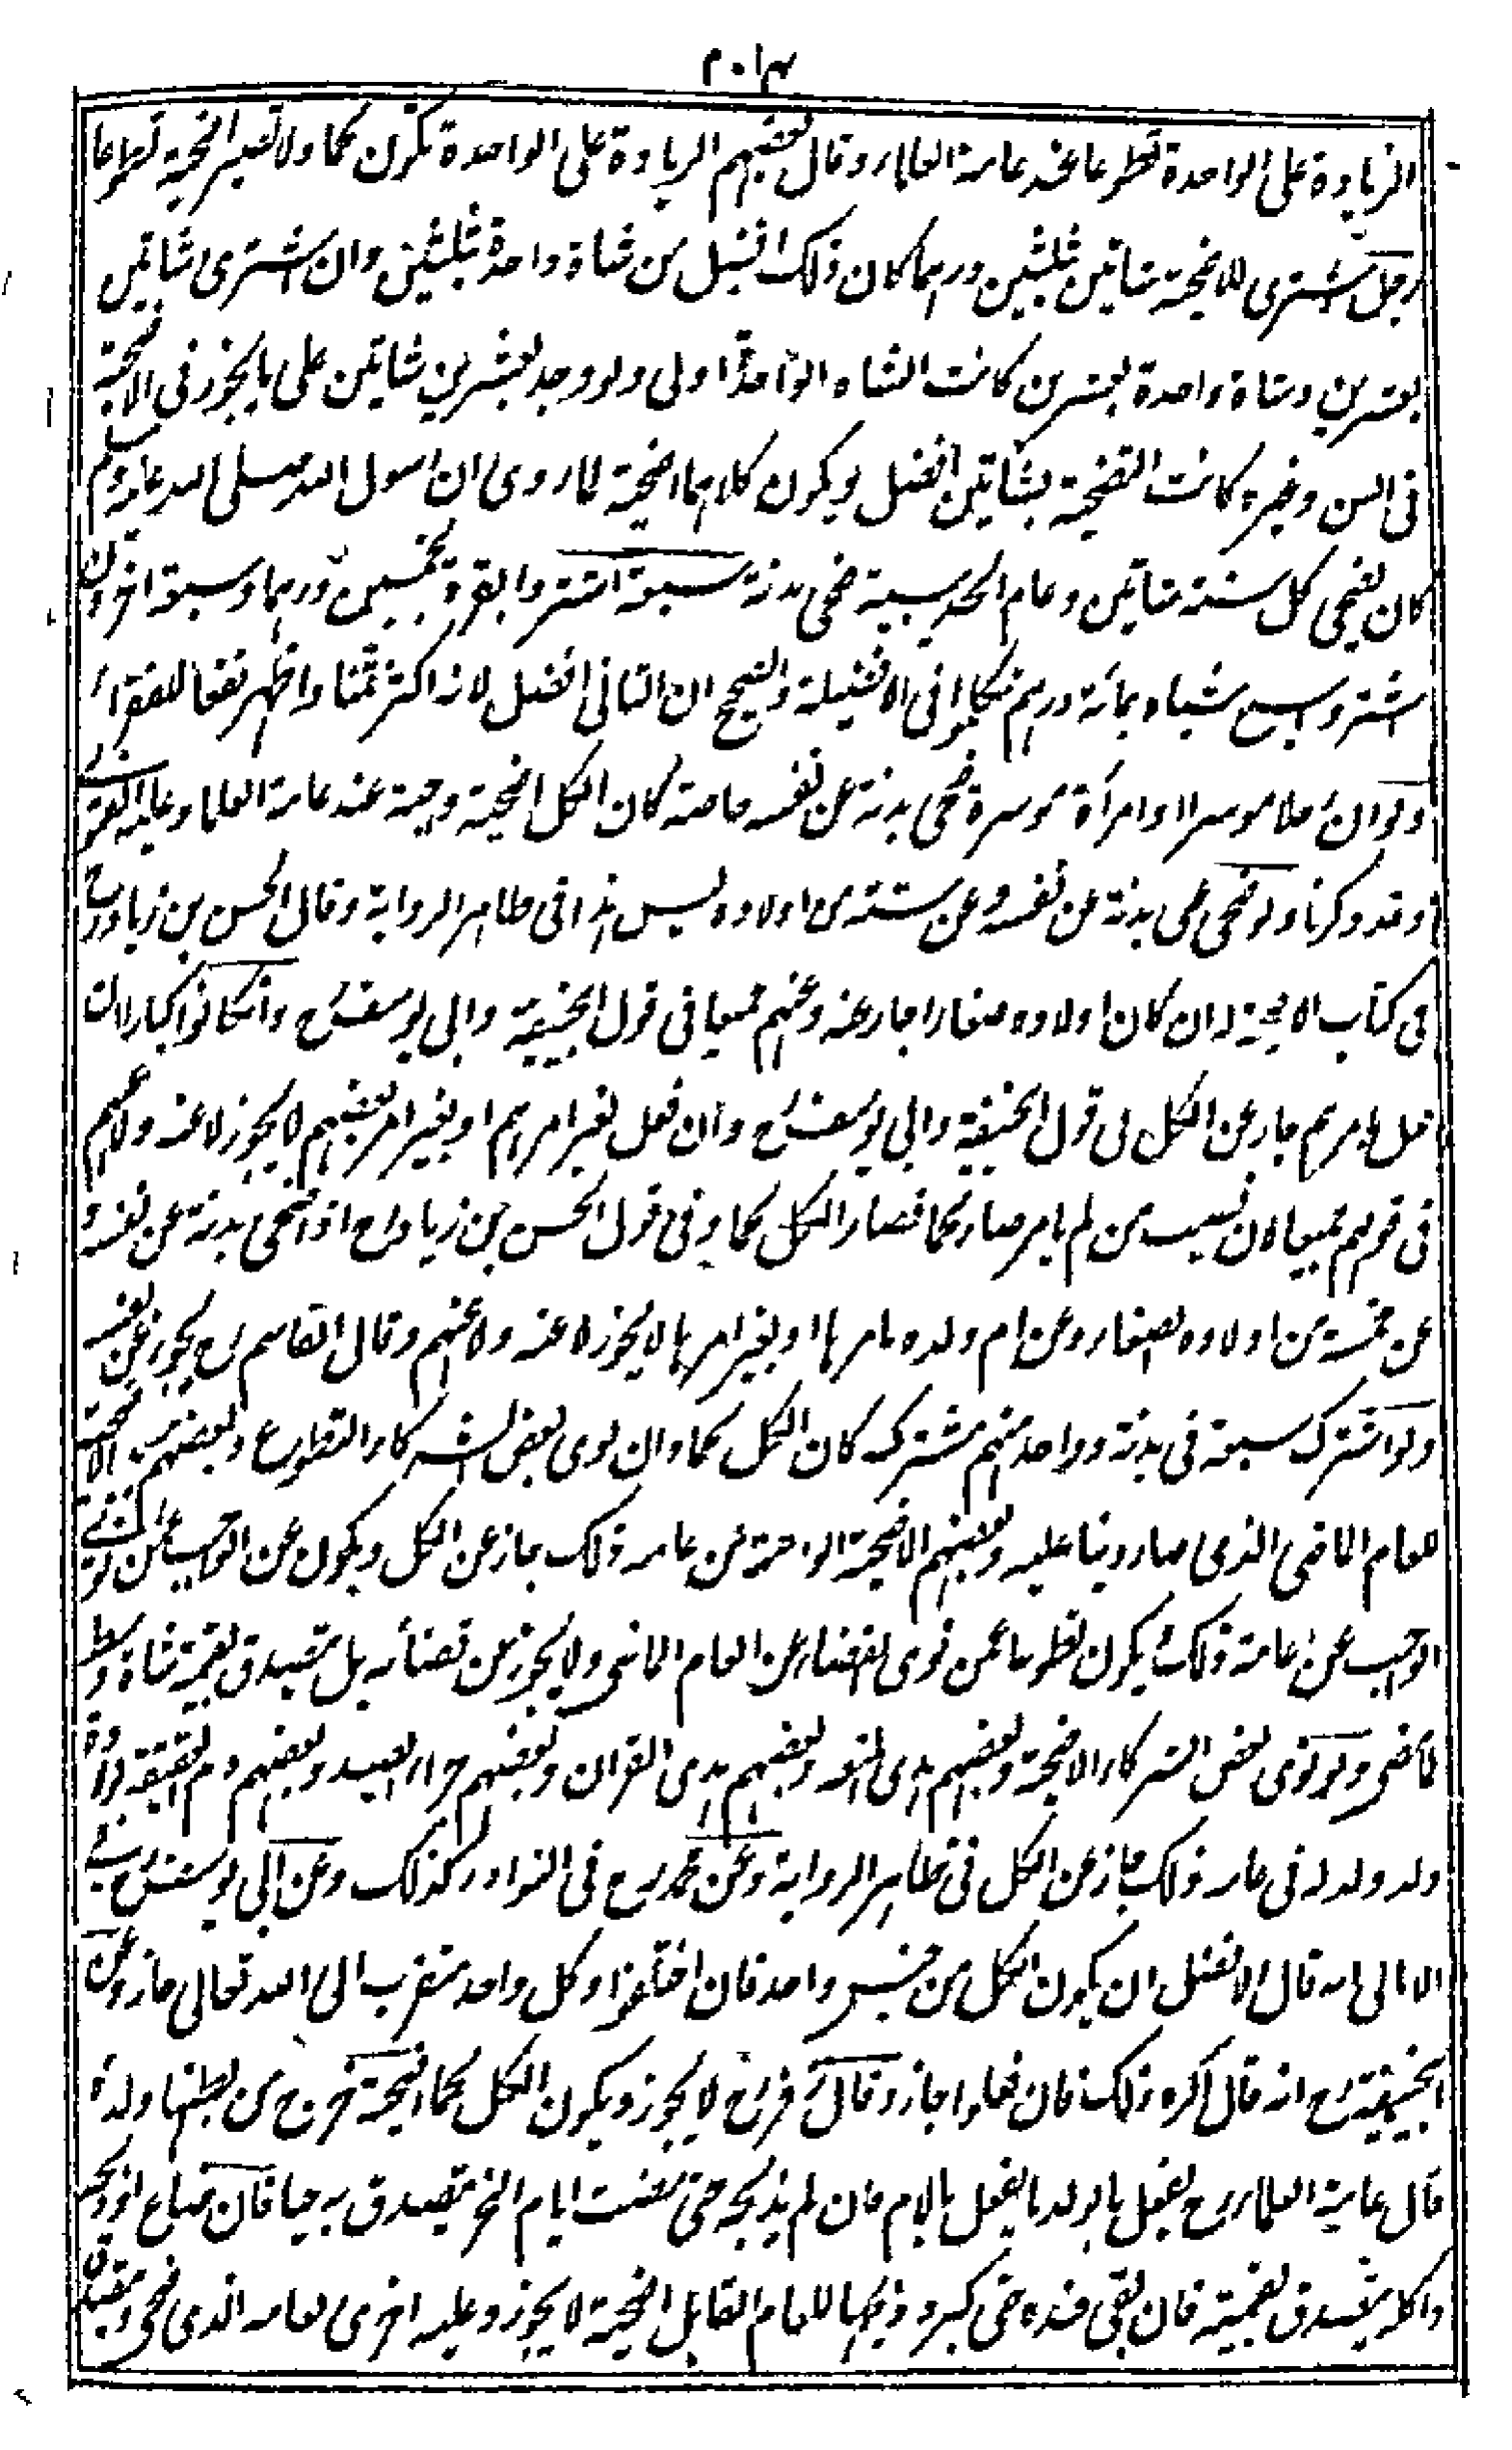 ١٠٣٤
الزيادة على الواحدة تطوعا عند عامة العلماء وقال بعضهم الزيادة على الواحدة تكون لحما ولا تصير اضحية تطوعا
رجل اشترى للاضحية شاتين بثلثين درهما كان ذلك افضل من شاة واحدة بثلثين وان اشترى شاتين
بعشرين وشاة واحدة بعشرين كانت الشاة الواحدة اولى ولو وجد بعشرين شاتين على ما يجوز في الاضحية
في السن وغيره كانت التضحية بشاتين افضل ويكون كلاهما اضحية لما روى ان رسول الله صلى الله عليه وسلم
كان يضحى كل سنة شاتين وعام الحديبية ضحى بدنة سبعة اشتروا بقرة بخمسين درهما وسبعة اخرون
اشتروا سبع شياه بمائة درهم تكلموا فى الافضلية والصحيح ان الثانى افضل لانه اكثر ثمنا واظهر نفعا للفقراء
ولو ان رجلا موسرا او امرأة موسرة ضحى بدنة عن نفسه خاصة كان الكل اضحية واجبة عند عامة العلماء وعليه الفتوى
وقد ذكرنا ولو ضحى بدنة عن نفسه وعن ستة من اولاده ليس هذا فى ظاهر الرواية وقال الحسن بن زياد رح
فى كتاب الاضحية له ان كان اولاده صغارا جاز عنه وعنهم جميعا فى قول ابى حنيفة وابى يوسف رح وان كانوا كبارا ان
فعل بامرهم جاز عن الكل فى قول ابى حنيفة وابى يوسف رح وان فعل بغير امرهم او بغير امر بعضهم لا يجوز لا عنه ولا عنهم
فى قولهم جميعا لان نصيب من لم يأمر صار لحما فصار الكل لحما وفى قول الحسن بن زياد رح اذا ضحى بدنة عن نفسه و
عن خمسة من اولاده الصغار وعن ام ولده بامرها او بغير امرها لا يجوز لا عنه ولا عنهم وقال ابو القاسم رح يجوز عن نفسه
ولو اشترك سبعة فى بدنة وواحد منهم مشرك كان الكل لحما وان نوى بعض الشركاء التطوع وبعضهم الاضحية
للعام الماضى الذى صار دينا عليه وبعضهم الاضحية الواجبة عن عامه ذلك جاز عن الكل ويكون عن الواجب عمن نوى
الواجب عن عامة ذلك ويكون تطوعا عمن نوى القضاء عن العام الماضى ولا يجوز عن قضائه بل يتصدق بقيمة شاة وسط
لما مضى ولو نوى بعض الشركاء الاضحية وبعضهم هدى المتعة وبعضهم هدى القران وبعضهم جزاء الصيد وبعضهم دم العقيقة لولادة
ولد ولد له فى عامه ذلك جاز عن الكل فى ظاهر الرواية وعن محمد رح فى النوادر كذلك وعن ابى يوسف رح فى
الامالى انه قال الافضل ان يكون الكل من جنس واحد فان اختلفوا وكل واحد متقرب الى الله تعالى جاز وعن
ابى حنيفة رح انه قال اكره ذلك فان فعلوا جاز وقال زفر رح لا يجوز ويكون الكل لحما اضحية خرج من بطنها ولد
قال عامة العلماء رح يفعل بالولد ما يفعل بالام فان لم يذبحه حتى مضت ايام النحر يتصدق به حيا فان ضاع او ذبحه
واكله يتصدق بقيمته فان بقى عنده حتى كبر وذبحها للعام القابل اضحية لا يجوز وعليه اخرى لعامه الذى ضحى ويتصدق